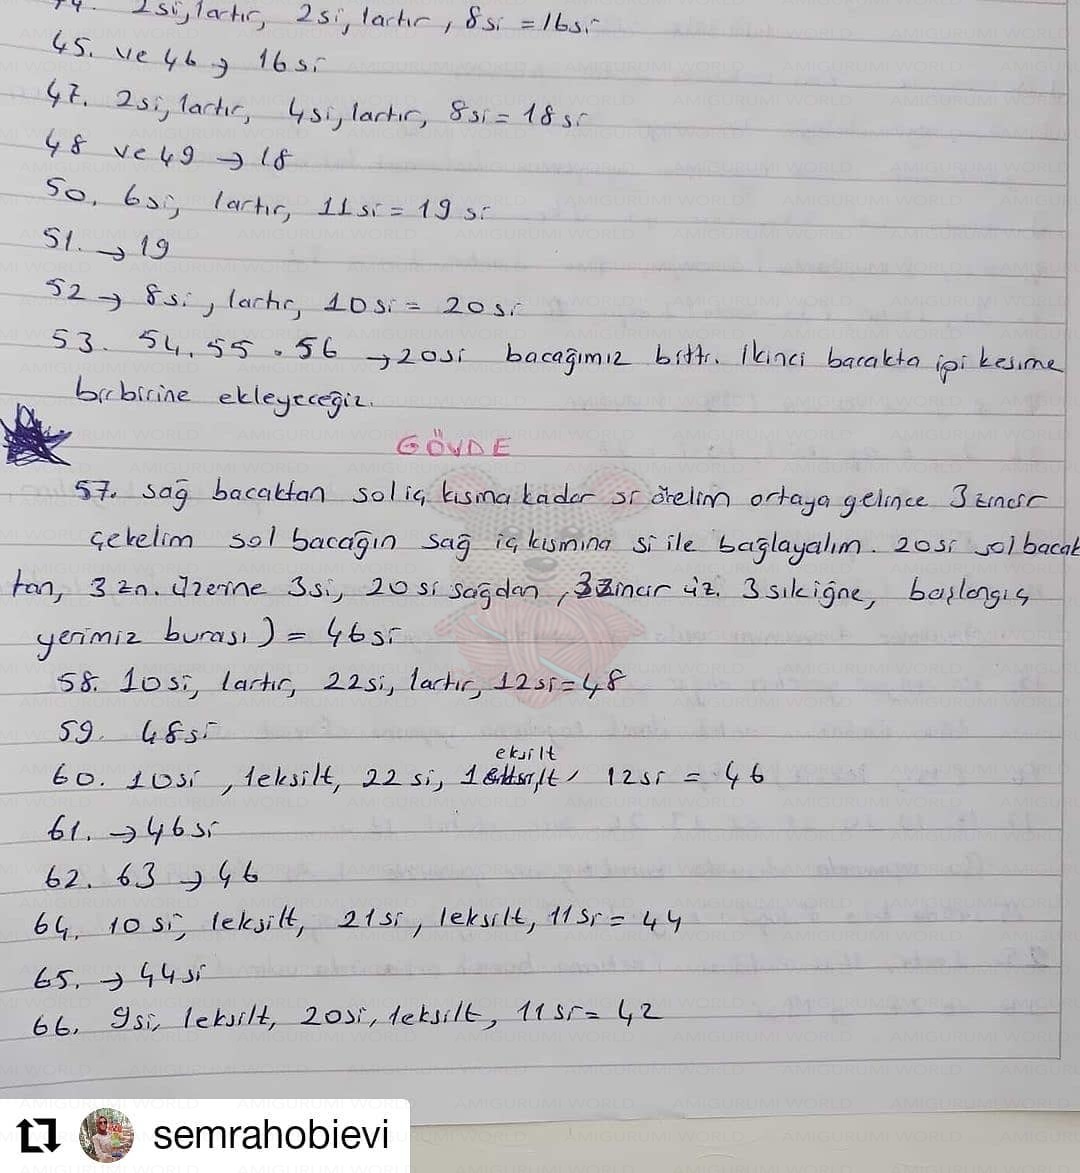 44. 2si, 1artır, 2si, 1artır, 8si = 16si
45. ve 46 → 16si
47. 2si, 1artır, 4si, 1artır, 8si = 18si
48 ve 49 → 18
50. 6si, 1artır, 11si = 19si
51. → 19
52 → 8si, 1artır, 10si = 20si
53. 54. 55. 56 → 20si bacağımız bitti. İkinci bacakta ipi kesme
birbirine ekleyeceğiz.
GÖVDE
57. sağ bacaktan sol iç kısma kadar si örelim ortaya gelince 3 zincir
çekelim sol bacağın sağ iç kısmına si ile bağlayalım. 20si sol bacak
tan, 3 zn. üzerine 3si, 20si sağdan, 3 zincir üz. 3 sıkiğne, başlangıç
yerimiz burası) = 46si
58. 10si, 1artır, 22si, 1artır, 12si = 48
59. 48si
eksilt
60. 10si, 1eksilt, 22si, 1 12si = 46
61. → 46si
62. 63 → 46
64. 10si, 1eksilt, 21si, 1eksilt, 11si = 44
65. → 44si
66. 9si, 1eksilt, 20si, 1eksilt, 11si = 42
AMIGURUMI WORLD
semrahobievi